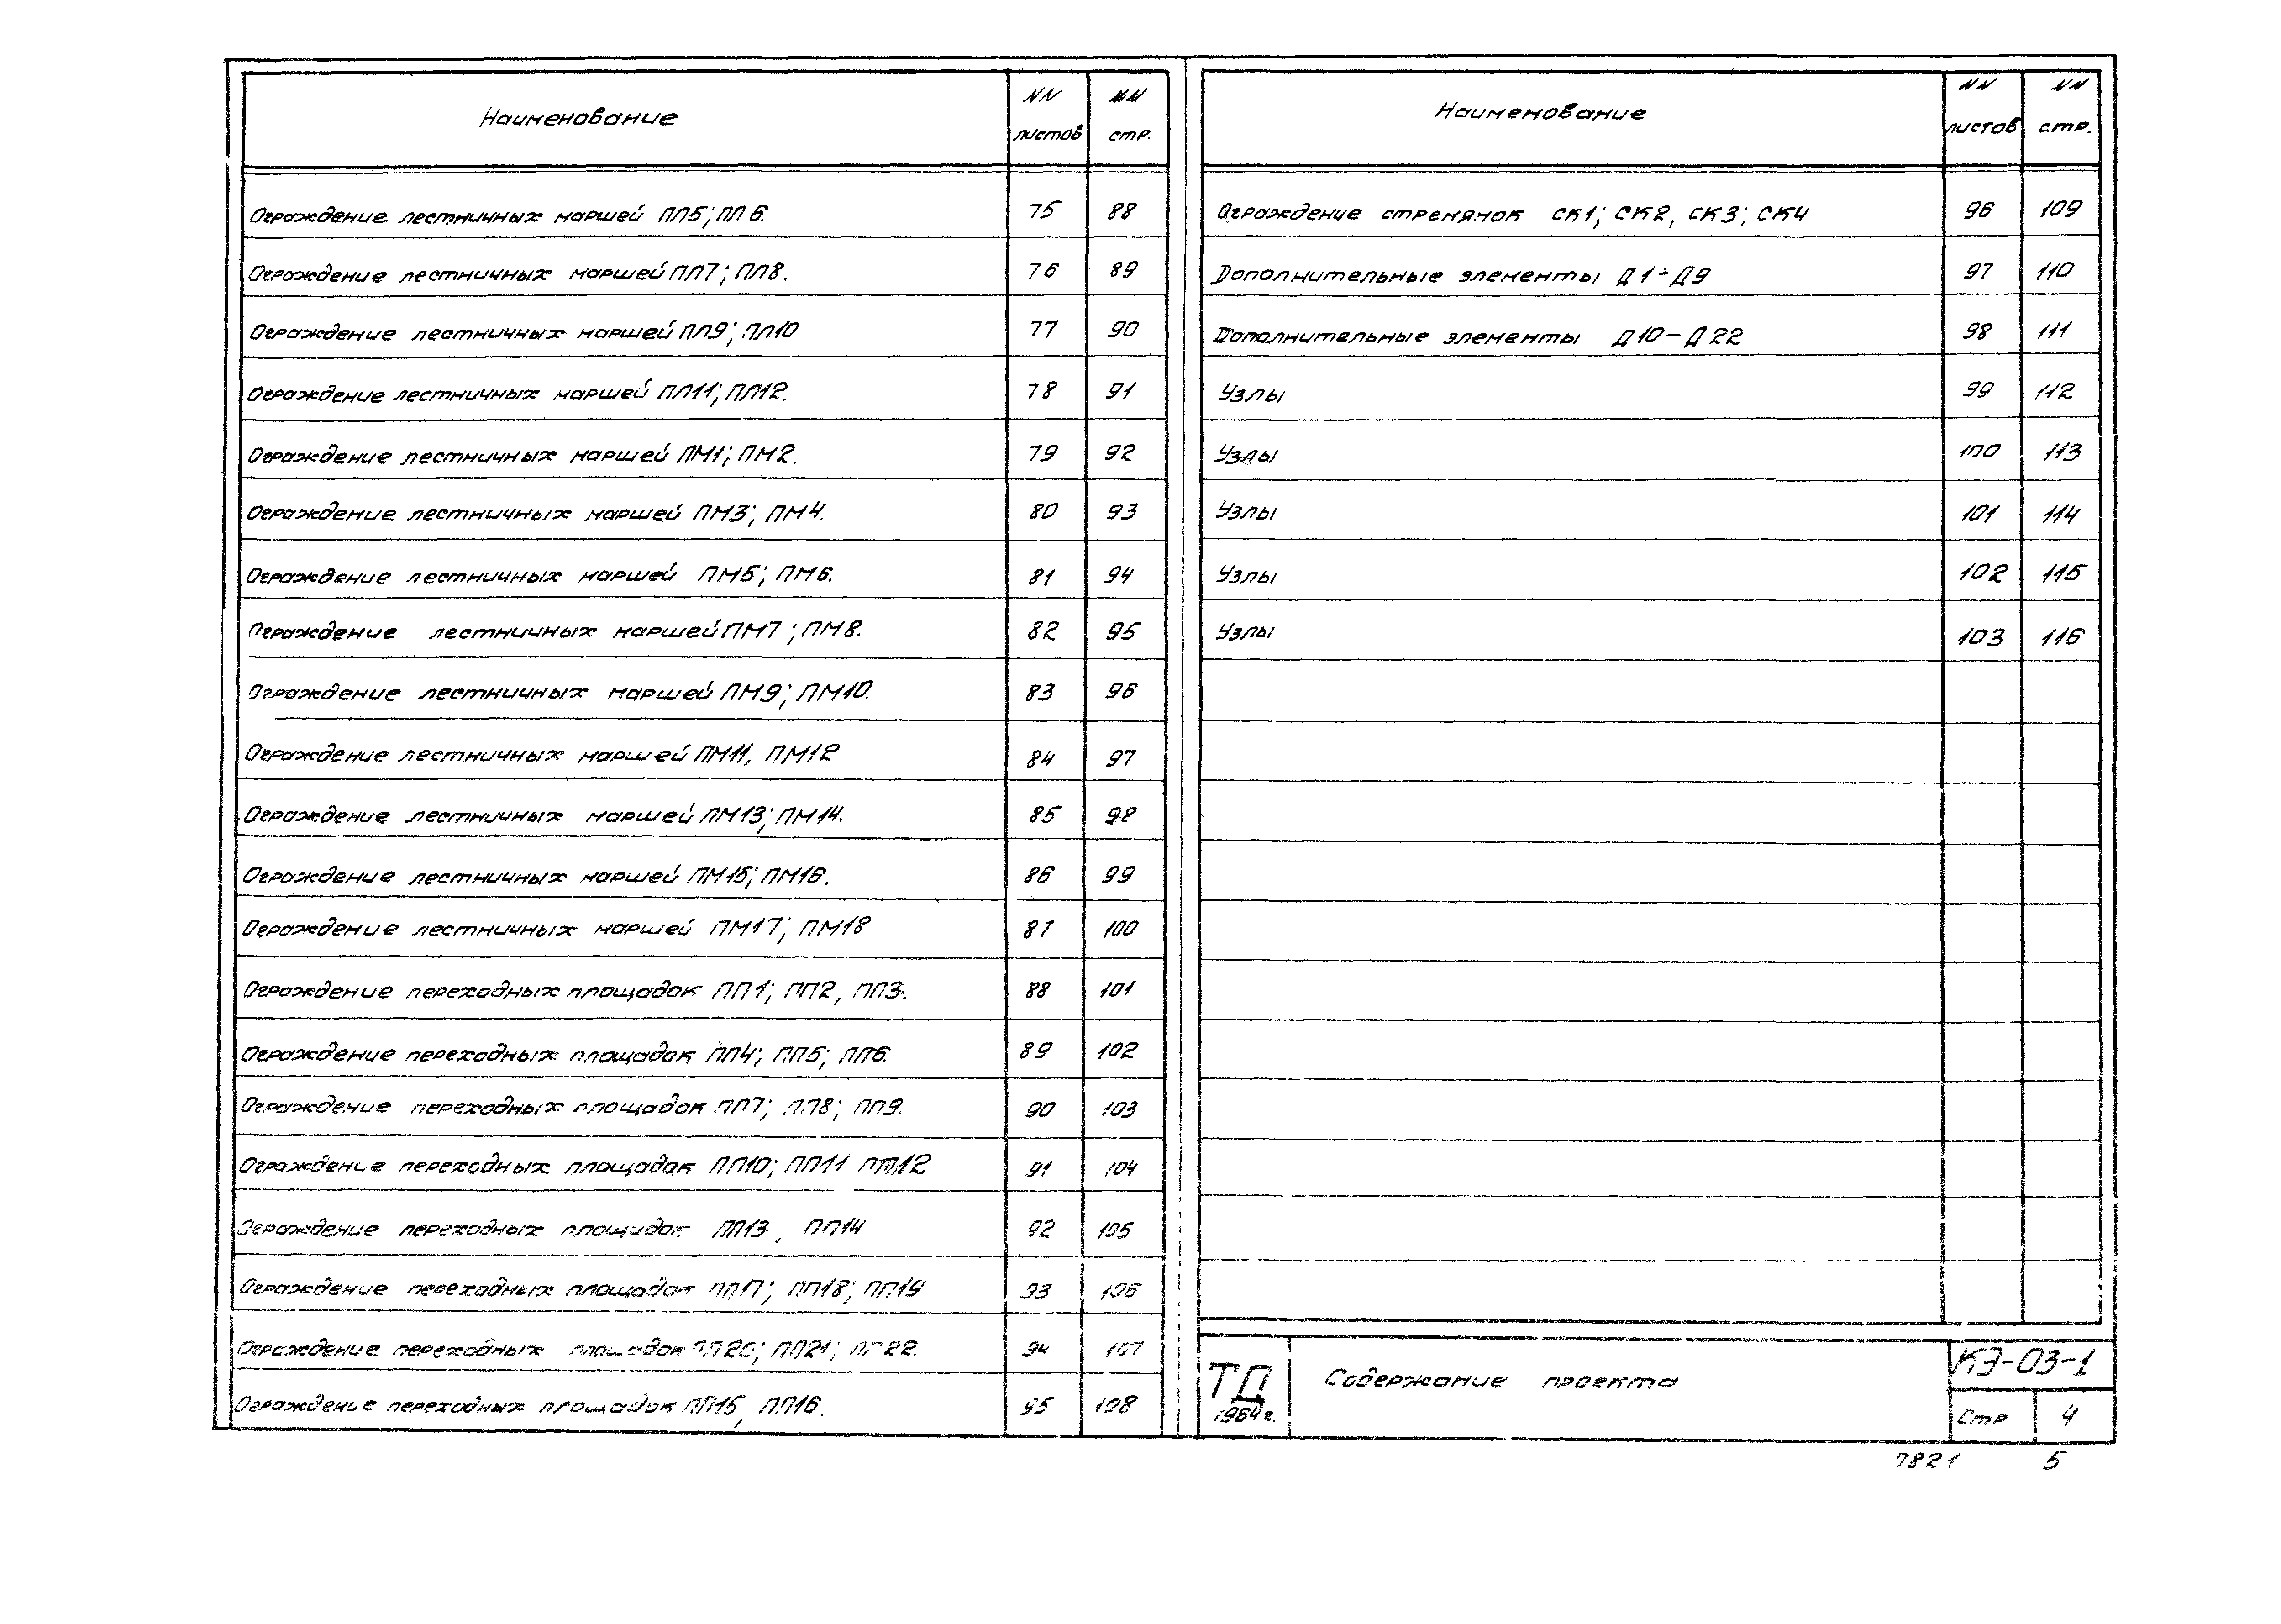 Наименование NN листов NN стр.
Ограждение лестничных маршей ПЛ5; ПЛ6. 75 88
Ограждение лестничных маршей ПЛ7; ПЛ8. 76 89
Ограждение лестничных маршей ПЛ9; ПЛ10 77 90
Ограждение лестничных маршей ПЛ11; ПЛ12. 78 91
Ограждение лестничных маршей ПМ1; ПМ2. 79 92
Ограждение лестничных маршей ПМ3; ПМ4. 80 93
Ограждение лестничных маршей ПМ5; ПМ6. 81 94
Ограждение лестничных маршей ПМ7; ПМ8. 82 95
Ограждение лестничных маршей ПМ9; ПМ10. 83 96
Ограждение лестничных маршей ПМ11, ПМ12 84 97
Ограждение лестничных маршей ПМ13; ПМ14. 85 98
Ограждение лестничных маршей ПМ15; ПМ16. 86 99
Ограждение лестничных маршей ПМ17; ПМ18 87 100
Ограждение переходных площадок ПП1; ПП2, ПП3. 88 101
Ограждение переходных площадок ПП4; ПП5; ПП6. 89 102
Ограждение переходных площадок ПП7; ПП8; ПП9. 90 103
Ограждение переходных площадок ПП10; ПП11 ПП12 91 104
Ограждение переходных площадок ПП13, ПП14 92 105
Ограждение переходных площадок ПП17; ПП18; ПП19 93 106
Ограждение переходных площадок ПП20; ПП21; ПП22. 94 107
Ограждение переходных площадок ПП15, ПП16. 95 108
Наименование NN листов NN стр.
Ограждение стремянок СК1; СК2, СК3; СК4 96 109
Дополнительные элементы Д1÷Д9 97 110
Дополнительные элементы Д10-Д22 98 111
Узлы 99 112
Узлы 100 113
Узлы 101 114
Узлы 102 115
Узлы 103 116
ТД 1964г.
Содержание проекта
КЭ-03-1
Стр 4
7821 5